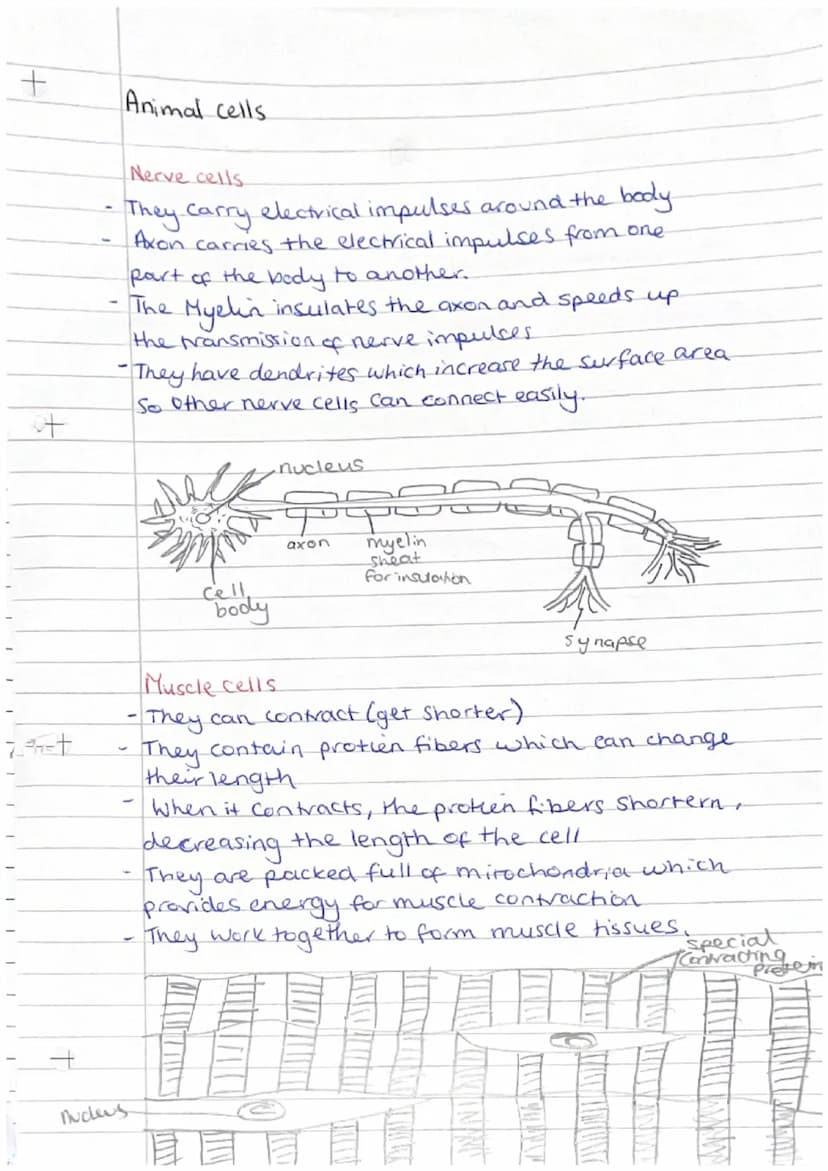 Animal cells
Nerve cells
- They carry electrical impulses around the body
- Axon carries the electrical impulses from one
part of the body to another.
- The Myelin insulates the axon and speeds up
the transmission of nerve impulses
- They have dendrites which increase the surface area
so other nerve cells can connect easily.
nucleus
axon
myelin
sheat
for insulation
cell
body
synapse
Muscle cells
- They can contract (get shorter)
- They contain protien fibers which can change
their length
- When it contracts, the protien fibers shortern,
decreasing the length of the cell
- They are packed full of mitochondria which
provides energy for muscle contraction
- They work together to form muscle tissues.
special
contracting
protein
nucleus